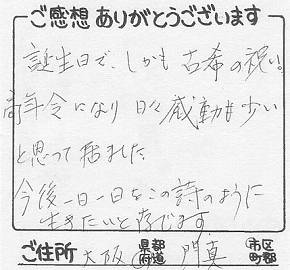 ご感想ありがとうございます
誕生日で、しかも古希の祝い!
高年令になり日々感動も少い
と思って居ました
今後一日一日をこの詩のように
生きたいと存じます
ご住所 大阪 都道府県 門真 市区町郡